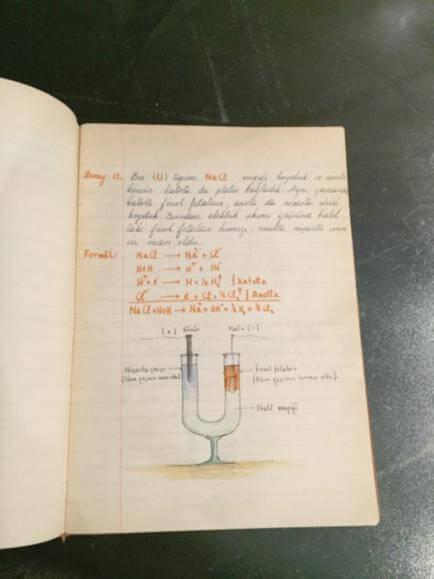 Deney: 11. Bu (U) tüpüne NaCl eriyiği koyduk ve anota
kömür katota da platin bağladık. Aynı zamanda
katota fenol fetalein, anota da nişasta eriyiği
koyduk. Bundan elektrik akımı geçirince katot
taki fenol fetalein kırmızı, anotta nişasta
mavi oldu.
Formül: NaCl → Na⁺ + Cl⁻
HOH → H⁺ + OH⁻
H⁺ + e → H = ½ H₂↑ } Katotta
Cl⁻ → e + Cl = ½ Cl₂↑ } Anotta
NaCl + HOH → Na⁺ + OH⁻ + ½ H₂ + ½ Cl₂
(+) Kömür Platin (-)
Nişasta eriyiği
(Akım geçince mavi oldu)
Fenol fetalein
(Akım geçince kırmızı oldu)
NaCl eriyiği